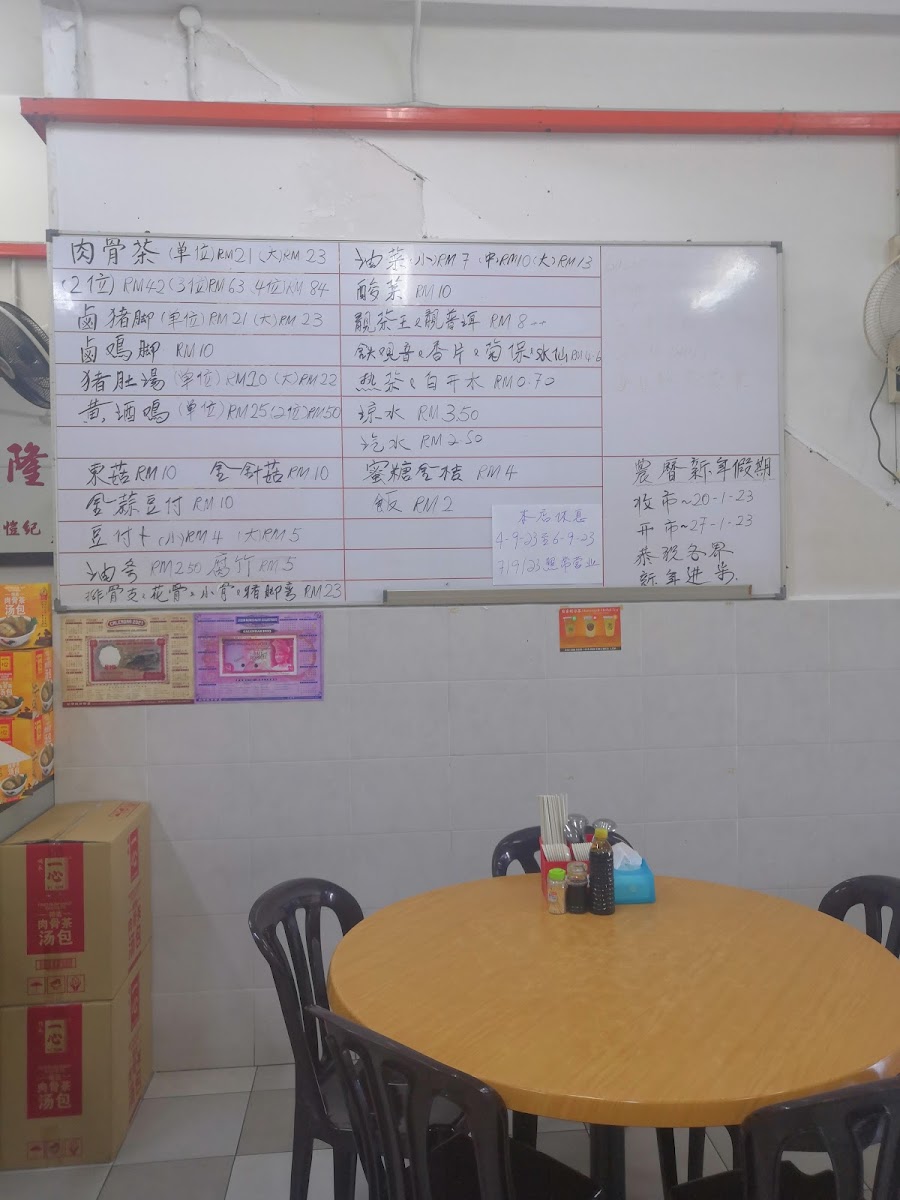 肉骨茶 (单位)RM21 (大)RM 23
(2位) RM42 (3位)RM63 (4位)RM 84
卤猪脚 (单位) RM 21 (大)RM 23
卤鸡脚 RM10
猪肚汤 (单位) RM20 (大)RM22
黄酒鸡 (单位)RM25(2位)RM50
東菇RM10 金针菇RM10
金蒜豆付 RM10
豆付卜(小)RM4 (大)RM5
油条 RM2.50 腐竹RM5
排骨支、花骨、小骨、猪脚弯 RM23
油菜(小)RM7 (中)RM10(大)RM13
酸菜 RM10
靓茶王、靓普洱 RM 8
铁观音、香片、菊保、水仙RM4.6
热茶、白干水 RM0.70
凉水 RM3.50
汽水 RM2.50
蜜糖金桔 RM4
飯 RM2
本店休息
4-9-23至6-9-23
7/9/23照常营业
農曆新年假期
收市~20-1-23
开市~27-1-23
恭祝各界
新年进步.
隆
愷纪
肉骨茶
汤包
一心
肉骨茶
汤包
一心
肉骨茶
汤包